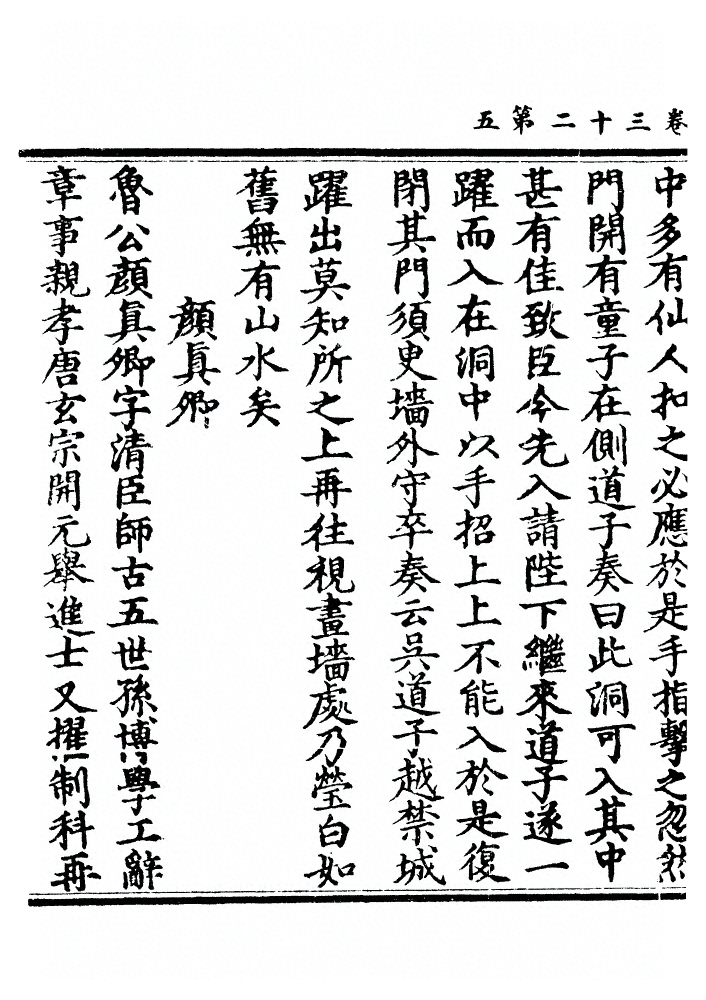 卷三十二第五
中多有仙人扣之必應於是手指擊之忽然
門開有童子在側道子奏曰此洞可入其中
甚有佳致臣今先入請陛下繼來道子遂一
躍而入在洞中以手招上上不能入於是復
閉其門須臾墻外守卒奏云吳道子越禁城
躍出莫知所之上再往視畫墻處乃瑩白如
舊無有山水矣
顏眞卿
魯公顏眞卿字清臣師古五世孫博學工辭
章事親孝唐玄宗開元舉進士又擢制科再